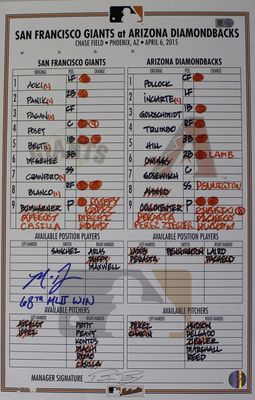 SAN FRANCISCO GIANTS at ARIZONA DIAMONDBACKS
CHASE FIELD • PHOENIX, AZ • APRIL 6, 2015
SAN FRANCISCO GIANTS
ARIZONA DIAMONDBACKS
ORIGINAL POS CHANGE
ORIGINAL POS CHANGE
1 AOKI LF
1 POLLOCK CF
2 PANIK 2B
2 INCIARTE RF
3 PAGAN CF
3 GOLDSCHMIDT
4 POSEY C
4 TRUMBO
5 BELT
5 HILL 2B LAMB
6 MCGEHEE
6
7 CRAWFORD SS
7 GOSEWISCH
8 BLANCO RF
8 AHMED SS PENNINGTON
9 BUMGARNER P DUFFY
9 COLLMENTER P
AFFELDT LOPEZ
CASILLA ROMO
PERALTA PACHECO
PEREZ ZIEGLER HUDSON
AVAILABLE POSITION PLAYERS
AVAILABLE POSITION PLAYERS
LEFT-HANDED SWITCH RIGHT-HANDED
LEFT-HANDED SWITCH RIGHT-HANDED
SANCHEZ ARIAS
DUFFY
MAXWELL
LAMB PENNINGTON LAIRD
PERALTA PACHECO
68TH MLB WIN
AVAILABLE PITCHERS
AVAILABLE PITCHERS
LEFT-HANDED RIGHT-HANDED
LEFT-HANDED RIGHT-HANDED
AFFELDT PETIT
LOPEZ PEAVY
KONTOS
MACHI
ROMO
CASILLA
PEREZ HUDSON
CHAFIN DELGADO
ZIEGLER
MARSHALL
REED
MANAGER SIGNATURE